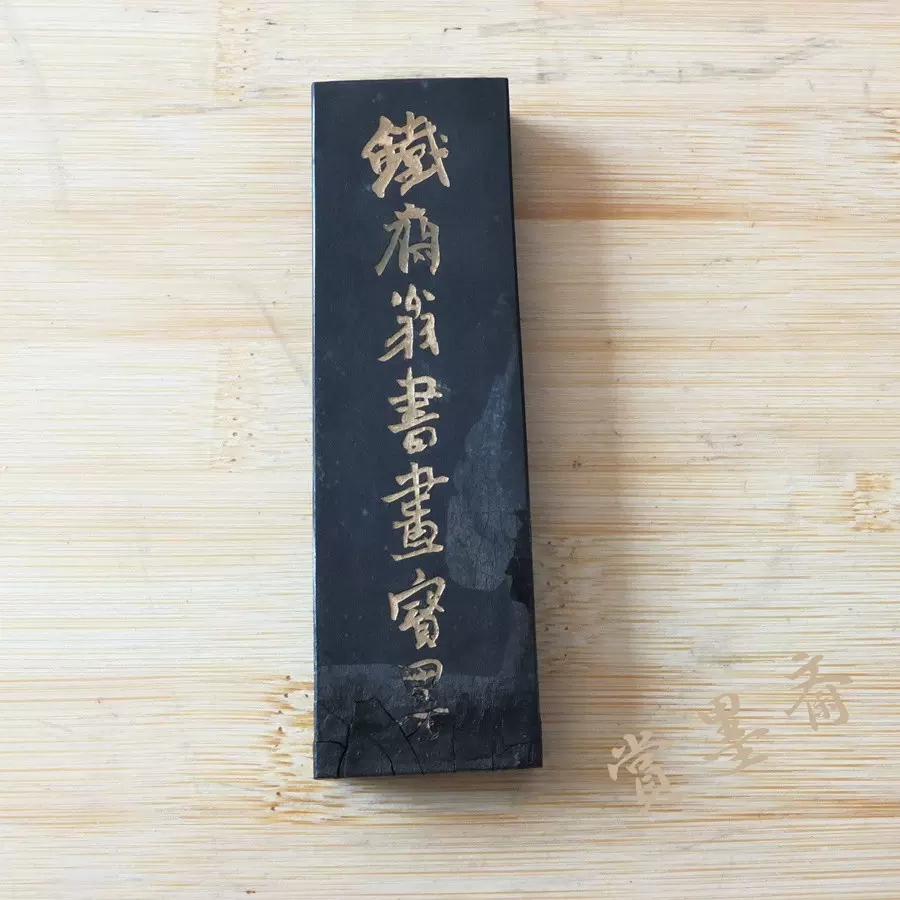 鐵齋翁書畫寶墨
賞墨齋